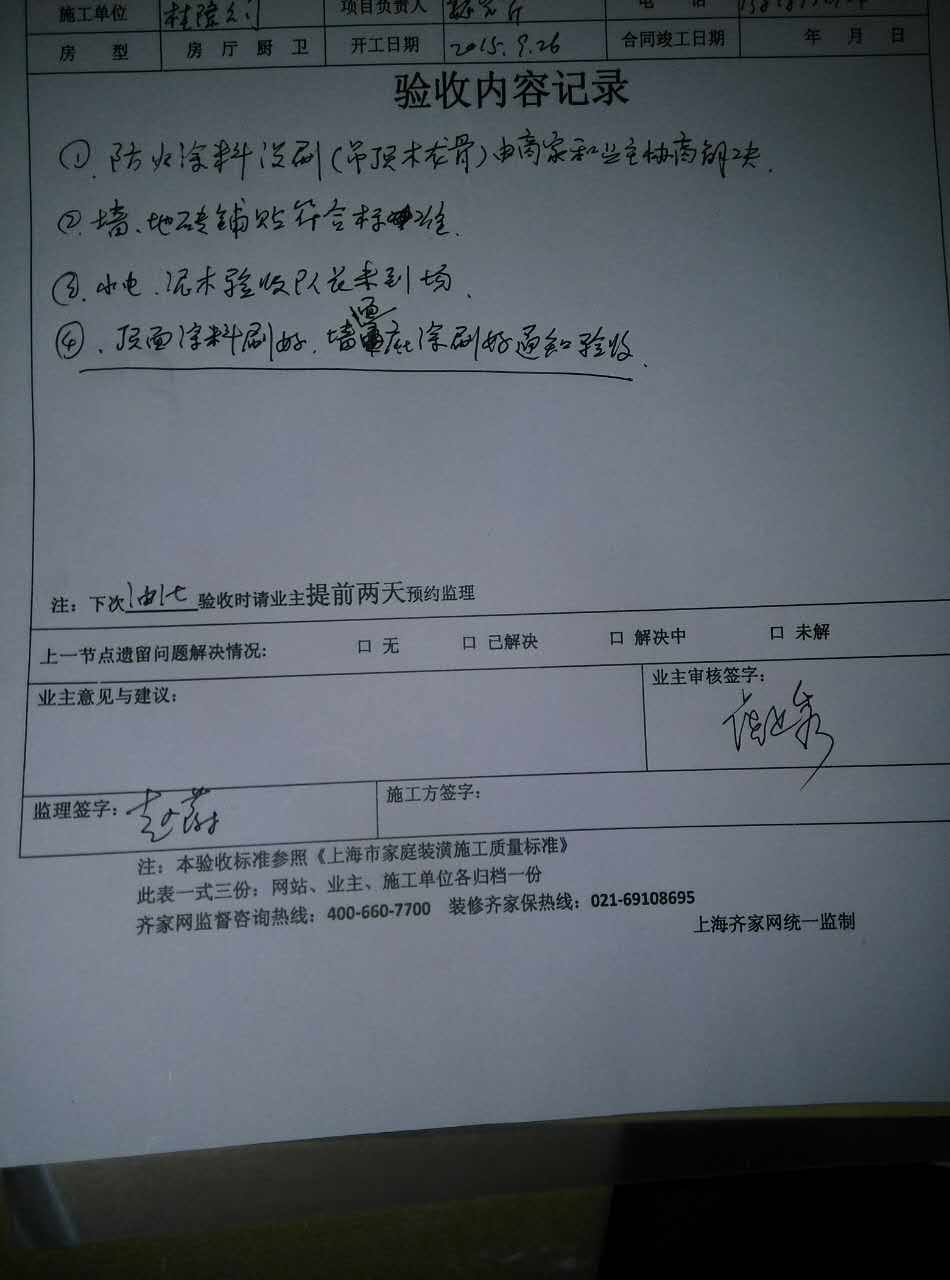 施工单位 项目负责人 电 话
房 型 房 厅 厨 卫 开工日期 2015.9.26 合同竣工日期 年 月 日
验收内容记录
①.防火涂料没刷(吊顶木龙骨)由商家和业主协商解决.
②.墙、地砖铺贴符合标准.
③.水电、泥木验收队长未到场.
④、顶面涂料刷好.墙面底涂刷好通知验收.
注：下次油漆验收时请业主提前两天预约监理
上一节点遗留问题解决情况: 口 无 口 已解决 口 解决中 口 未解
业主意见与建议: 业主审核签字:
监理签字: 施工方签字:
注：本验收标准参照《上海市家庭装潢施工质量标准》
此表一式三份：网站、业主、施工单位各归档一份
齐家网监督咨询热线：400-660-7700 装修齐家保热线：021-69108695
上海齐家网统一监制